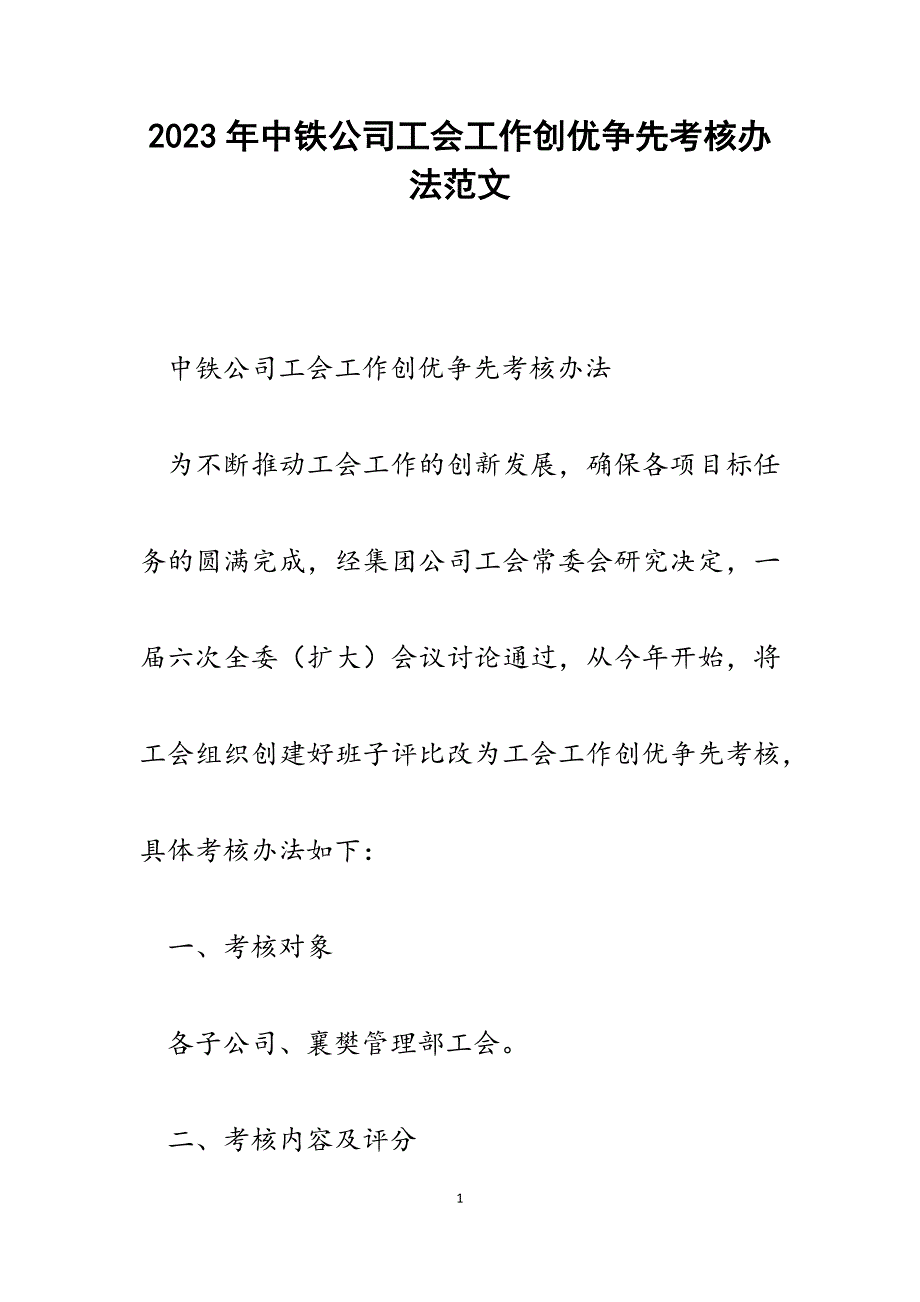 2023年中铁公司工会工作创优争先考核办
法范文
中铁公司工会工作创优争先考核办法
为不断推动工会工作的创新发展，确保各项目标任
务的圆满完成，经集团公司工会常委会研究决定，一
届六次全委（扩大）会议讨论通过，从今年开始，将
工会组织创建好班子评比改为工会工作创优争先考核，
具体考核办法如下：
一、考核对象
各子公司、襄樊管理部工会。
二、考核内容及评分
1